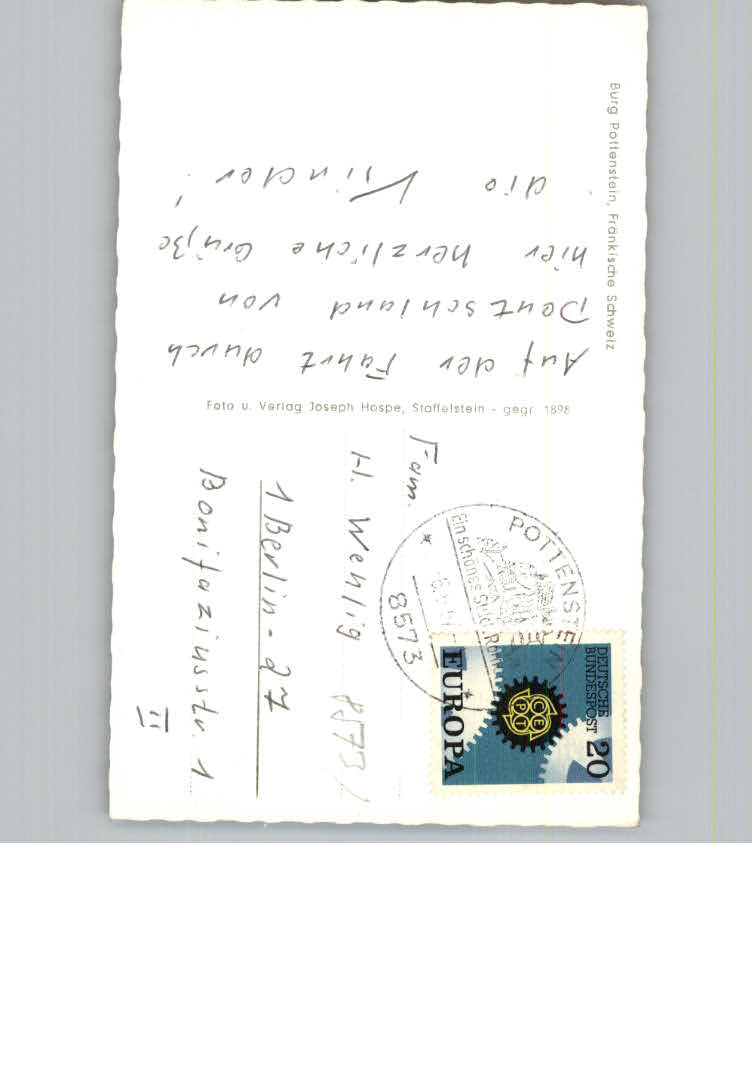 Burg Pottenstein, Fränkische Schweiz
Auf der Fahrt durch
Deutschland von
hier herzliche Grüße
die Kinder!
Foto u. Verlag Joseph Hospe, Staffelstein - gegr. 1898
Fam.
H. Wehlig
1 Berlin - 27
Bonifaziusstr. 1
II
8573
POTTENSTEIN
Ein schönes Stück
8573
DEUTSCHE
BUNDESPOST 20
CEPT
EUROPA